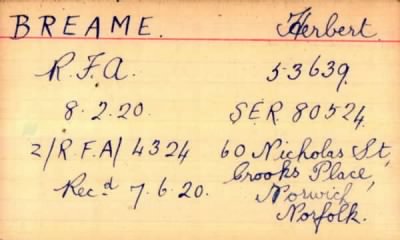 BREAME. Herbert.
R.F.A. 53639.
8.2.20. SER 80524.
2/R.F.A/4324 60 Nicholas St,
Crooks Place,
Recd 7.6.20. Norwich
Norfolk.